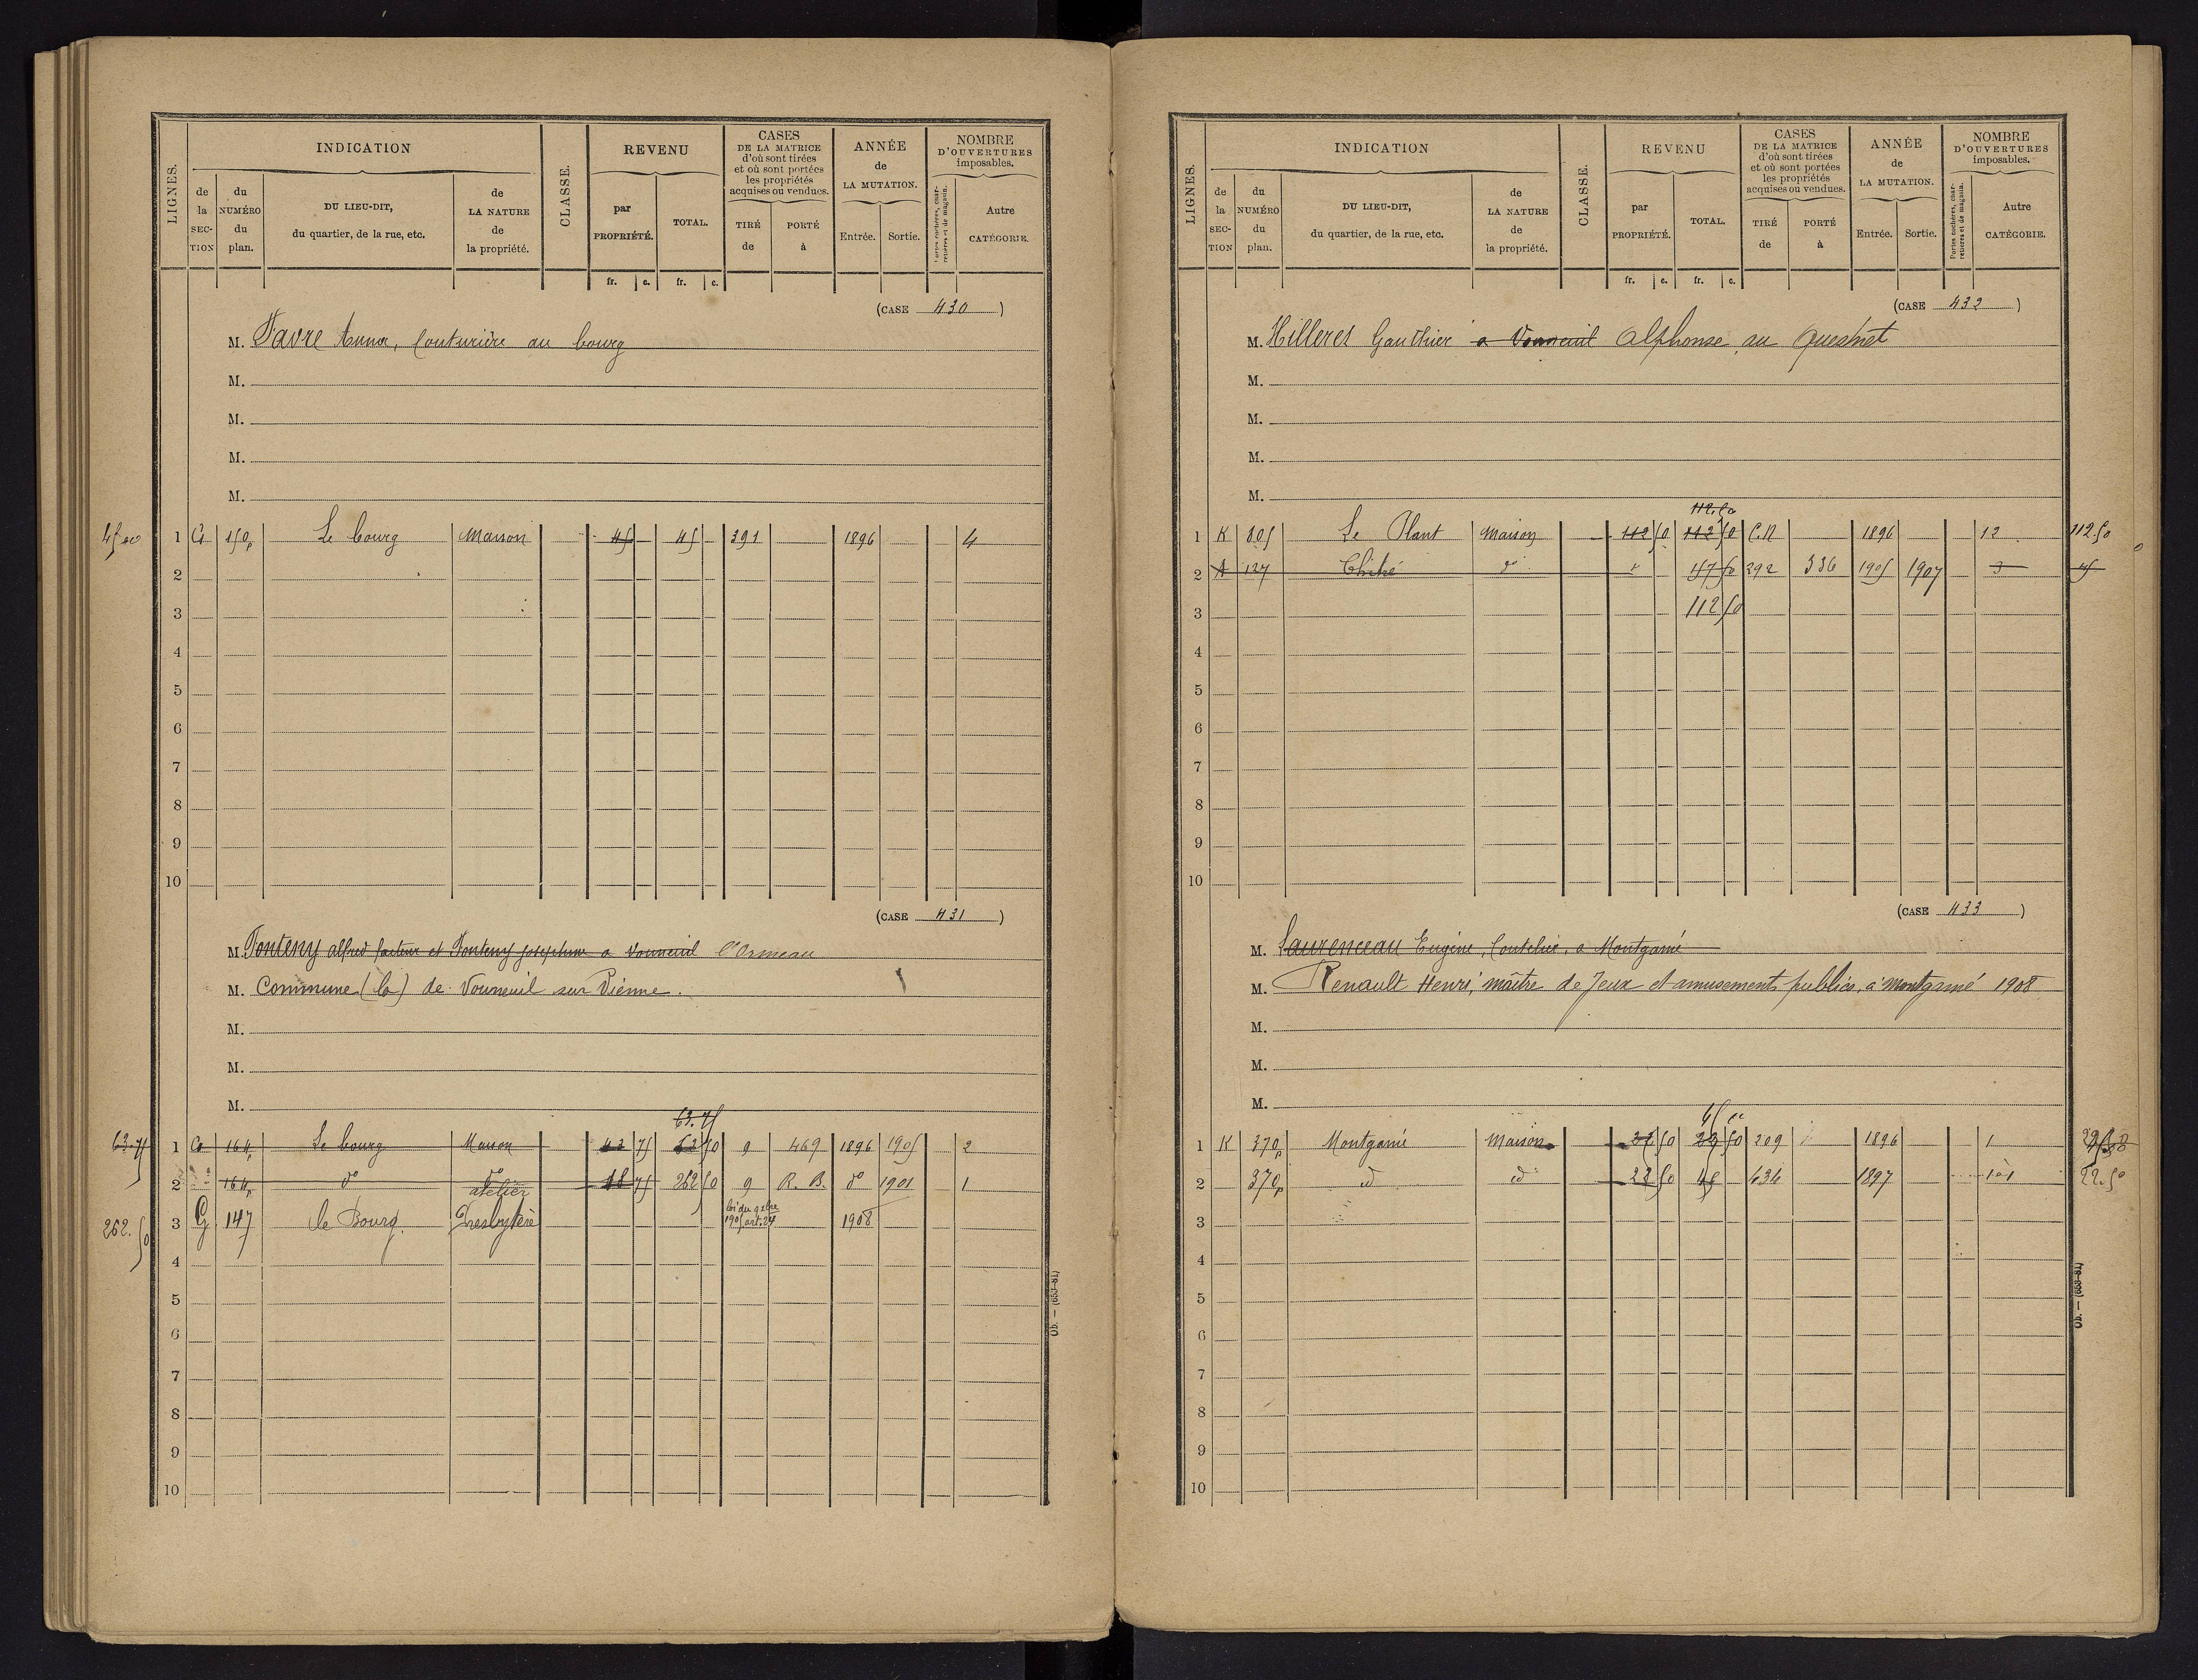 LIGNES.
INDICATION
CLASSE.
REVENU
CASES
DE LA MATRICE
d'où sont tirées
et où sont portées
les propriétés
acquises ou vendues.
ANNÉE
de
LA MUTATION.
NOMBRE
D'OUVERTURES
imposables.
de la SECTION
du NUMÉRO du plan.
DU LIEU-DIT,
du quartier, de la rue, etc.
de LA NATURE de la propriété.
par PROPRIÉTÉ.
TOTAL.
TIRÉ de
PORTÉ à
Entrée.
Sortie.
Portes cochères, charretières et de magasin.
Autre CATÉGORIE.
fr. c. fr. c.
(CASE 430)
M. Favre Anna, Couturière au bourg
M.
M.
M.
M.
45 00 1 G 150p Le bourg Maison 45 45 391 1896 4
2
3
4
5
6
7
8
9
10
(CASE 431)
M. Fonteny alfred facteur et Fonteny a Vouneuil l'Ormeau
M. Commune (la) de Vouneuil sur Vienne.
M.
M.
M.
63.75
63.75 1 G 164p Le bourg Maison 43 75 50 9 469 1896 1905 2
2 164p do do atelier 18 75 262 50 9 R. B. do 1901 1
262.50 3 G 147 le Bourg. Presbytère loi du 9 xbre 1905 art. 24 1908
4
5
6
7
8
9
10
Ob. — (653-81)
LIGNES.
INDICATION
CLASSE.
REVENU
CASES
DE LA MATRICE
d'où sont tirées
et où sont portées
les propriétés
acquises ou vendues.
ANNÉE
de
LA MUTATION.
NOMBRE
D'OUVERTURES
imposables.
de la SECTION
du NUMÉRO du plan.
DU LIEU-DIT,
du quartier, de la rue, etc.
de LA NATURE de la propriété.
par PROPRIÉTÉ.
TOTAL.
TIRÉ de
PORTÉ à
Entrée.
Sortie.
Portes cochères, charretières et de magasin.
Autre CATÉGORIE.
fr. c. fr. c.
(CASE 432)
M. Hilleret Gauthier a Vouneuil Alphonse au Quesnet
M.
M.
M.
M.
112.50
1 K 805 Le Plant Maison 112 50 112 50 C.N 1896 12 112.50
2 A 127 Chitré do 157 50 292 336 1905 1907 3 45
3 112 50
4
5
6
7
8
9
10
(CASE 433)
M. Laurenceau Eugène, Coutelier, a Montgamé
M. Renault Henri, maître de Jeux et amusements publics, à Montgamé 1908
M.
M.
M.
45
1 K 370p Montgamé Maison 50 50 209 1896 1
2 370p id id 22 50 45 434 1897 1 22.50
3
4
5
6
7
8
9
10
Ob. — (653-81)